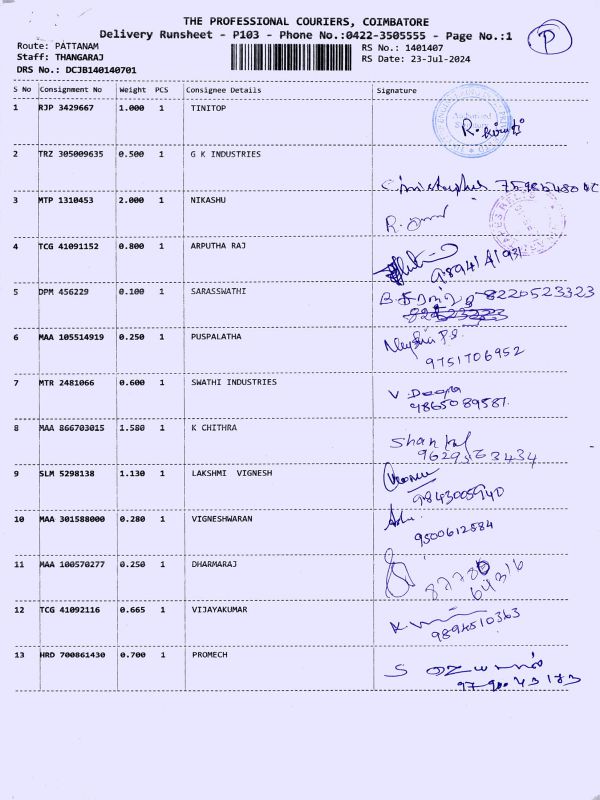 THE PROFESSIONAL COURIERS, COIMBATORE
Delivery Runsheet - P103 - Phone No.:0422-3505555 - Page No.:1
P
Route: PATTANAM
RS No.: 1401407
Staff: THANGARAJ
RS Date: 23-Jul-2024
DRS No.: DCJB140140701
S No Consignment No Weight PCS Consignee Details Signature
1 RJP 3429667 1.000 1 TINITOP
2 TRZ 305009635 0.500 1 G K INDUSTRIES
3 MTP 1310453 2.000 1 NIKASHU
4 TCG 41091152 0.800 1 ARPUTHA RAJ
5 DPM 456229 0.100 1 SARASSWATHI 8220523323
6 MAA 105514919 0.250 1 PUSPALATHA
9751706952
7 MTR 2481066 0.600 1 SWATHI INDUSTRIES
V. Deepa
9865089581.
8 MAA 866703015 1.580 1 K CHITHRA
9 SLM 5298138 1.130 1 LAKSHMI VIGNESH
9843005940
10 MAA 301588000 0.280 1 VIGNESHWARAN
9500612584
11 MAA 100570277 0.250 1 DHARMARAJ
64316
12 TCG 41092116 0.665 1 VIJAYAKUMAR
9894510363
13 HRD 700861430 0.700 1 PROMECH
S